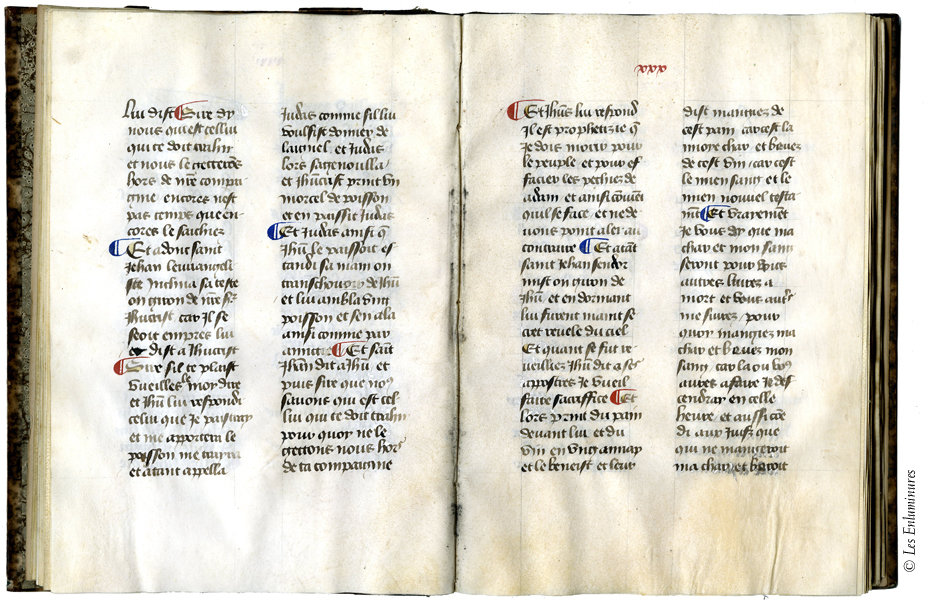 lui dist Sire dy
nous qui est cellui
qui te doit trahir
et nous le getterons
hors de nrē compai
gnie encores nest
pas temps que en
cores le saichiez
Et adont saint
Jehan leuvangeli
ste Inclina sa teste
on giron de nrē sr
Jhucrist car Il se
seoit empres lui
et dist a Jhucrist
Sire sil te plaist
vueilles le moy dire
et Jhū lui respondi
celui que Je paistray
et me apportera le
poisson me traira
et atant appella
Judas comme sil lui
voulsist donner de
laignel et Judas
lors sagenoulla
et Jhucrist print un
morcel de poisson
et en paissit Judas
Et Judas ainsi q̄
Jhū le paissoit es
tandi sa main on
de Jhū
et lui ambla ung
poisson et sen ala
ainsi comme par
Et saint
Jhān dit a Jhū et
puis sire que nous
savons qui est cel
lui qui te doit trahir
pour quoy ne le
gettons nous hors
de ta compaignie
xxx
Et Jhūs lui respond
Il est prophetizie q̄
Je dois morir pour
le peuple et pour ef
facier les pechiez de
adam et ainsi convient
quil se face et ne de
vons point aler au
contraire Et atant
saint Jehan sendor
mist on giron de
Jhū et en dormant
lui furent maint se
cret revele du ciel
Et quant se fut re
veilliez Jhū dit a ses
apostres Je vueil
faire sacrifice Et
lors print du pain
devant lui et du
vin en ung annap
et le beneist et leur
dist mangiez de
cest pain car cest la
moye char et buvez
de cest vin car cest
le mien sang et le
mien nouvel testa
ment Et vrayement
Je vous dy que ma
char et mon sang
seront pour vous
autres livrez a
mort et vous autres
me suirez pour
quoy mangiez ma
char et buvez mon
sang car la ou vous
autres a faire Je des
cendray en celle
heure et aussi ce
di aux Juifz que
qui ne mangeroit
ma char et buroit
© Les Enluminures